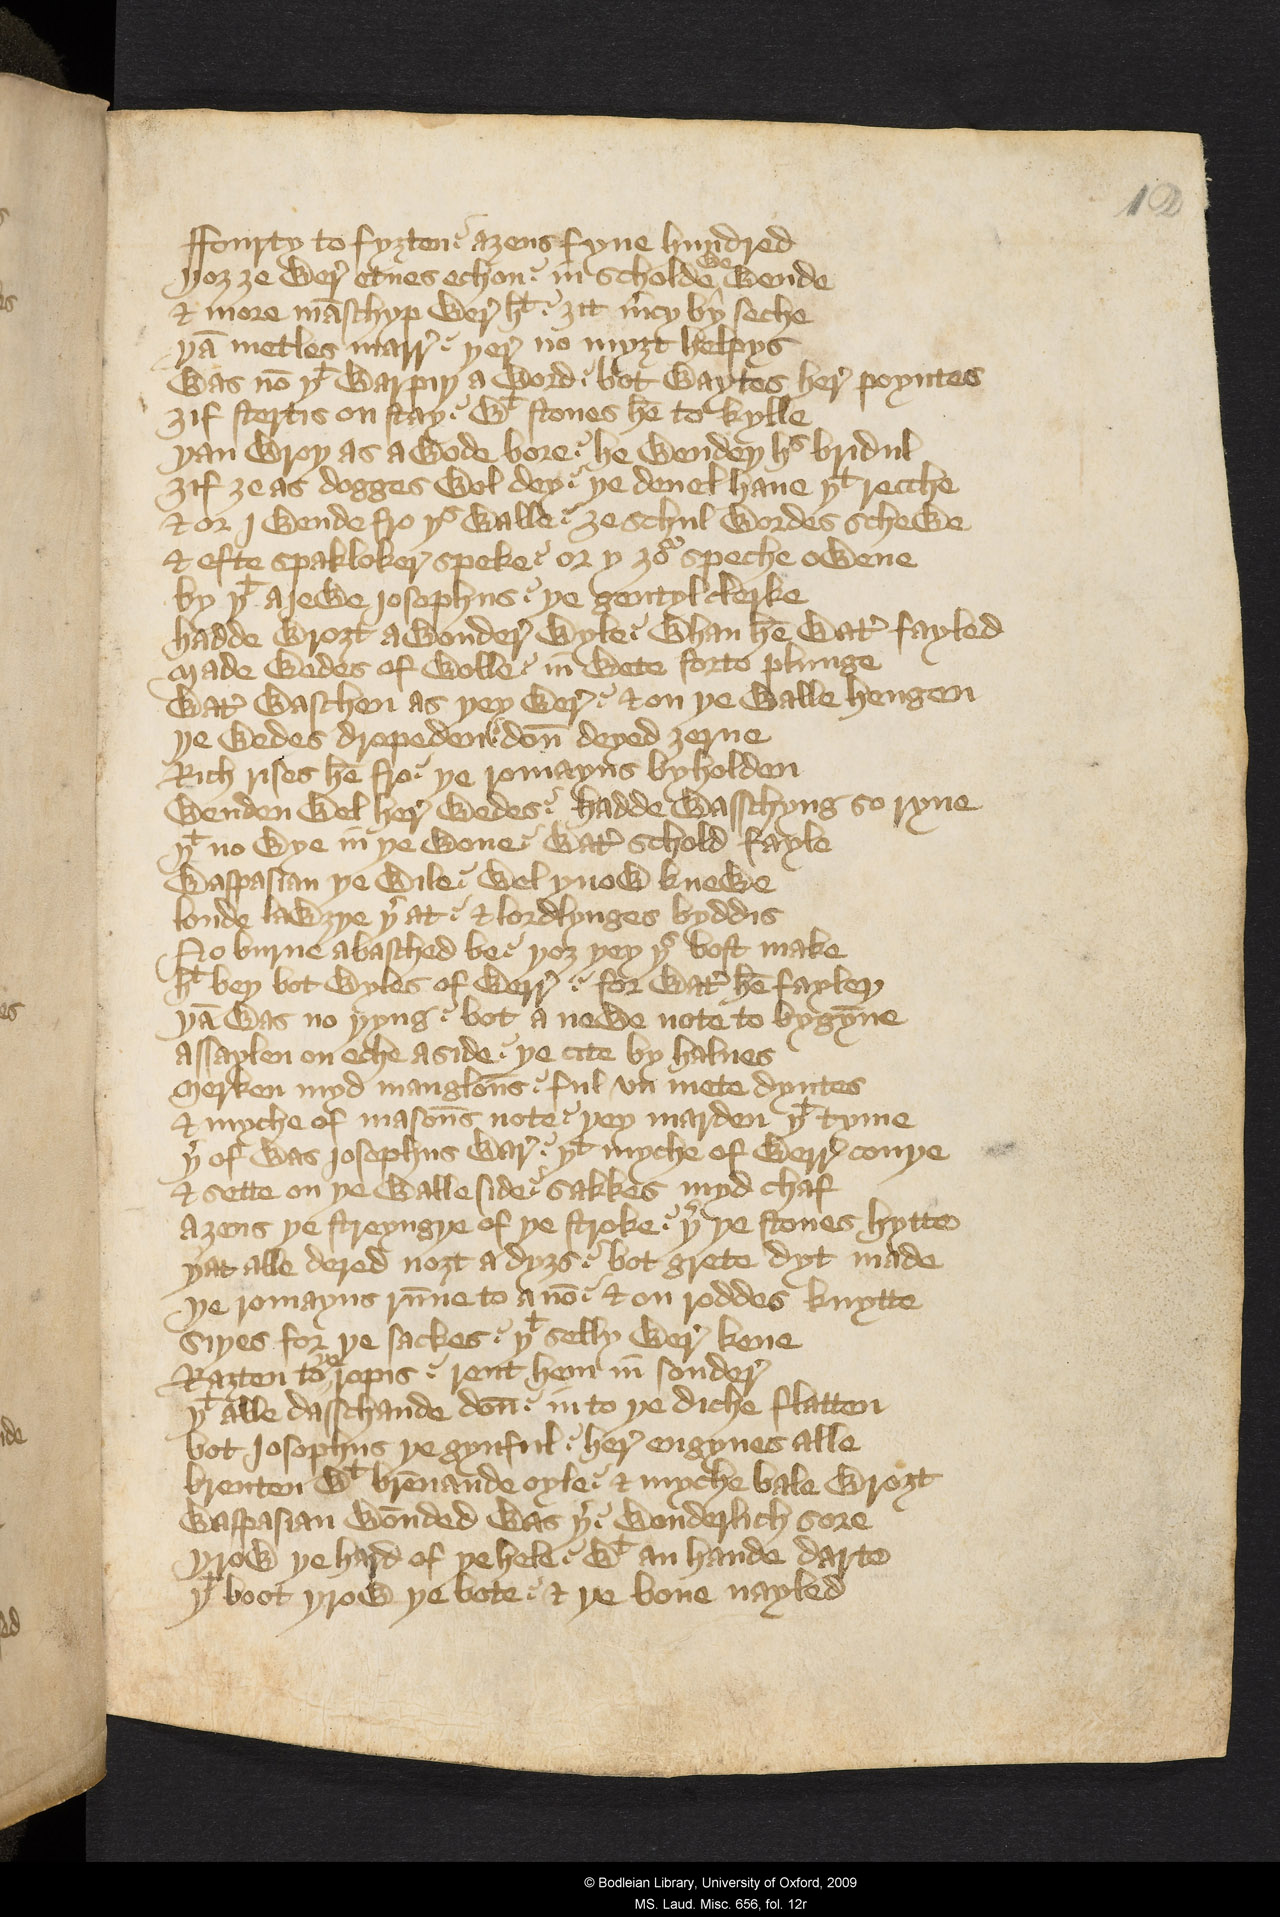 12
ffourty to fyȝten aȝens fyue hundred
þoȝ ȝe wer etnes echon in scholde we wende
& more mãschyp wer hᵗ ȝit mcy by seche
þã metles marr þer no myȝt helpys
Was nō þᵗ warpiþ a word bot waytes her poyntes
ȝif stertis on stay wᵗ stones hē to kylle
þan wroþ as a wode bore he wendeþ hˢ bridul
ȝif ȝe as dogges wol dey þe deuel haue þᵗ recche
& or j wende fro þˢ walle ȝe schul wordes schewe
& efte spakloker speke or y ȝoʳ speche owene
by þᵗ a jewe josophus þe gentyl clerke
hadde wroȝt a wonder wyle whan hē watˀ fayled
Made wedes of wolle in wete forto plunge
Watˀ waschen as þey wer & on þe walle hengen
þe wedes dropeden doū deyed ȝerne
Rich rises hē fro þe romayns byholden
Wenden wel her wedes hadde wasschyng so ryue
þᵗ no wye in þe wone watˀ schold fayle
Waspasian þe wile wel ynow knewe
loude lawȝye þˀ at & lordlynges byddis
No burne abasched be þoȝ þey þˢ bost make
hᵗ beþ bot wyles of werr for watˀ hē fayleþ
þã was no þyng bot a newe note to bygȳne
assaylen on eche a side þe cite by halues
Merken myd manglons ful vn mete dyntes
& myche of masons note þey marden þᵗ tyme
þˀ of was josophus war þᵗ myche of werr couþe
& sette on þe walle side sakkes myd chaf
aȝens þe streyngþe of þe stroke þˀ þe stones hytte
þat alle dered noȝt a dyȝs bot grete dyt made
þe romayns rūne to a nō & on roddes knytte
Siþes for þe sackes þᵗ selly wer kene
Raȝten to þe ropis rent hem in sonder
þᵗ alle dasschande doū in to þe diche flatten
bot Josophus þe gynful her engynes alle
brenten wᵗ brēnande oyle & myche bale wroȝt
Waspasian wonded was þˀ wonderlich sore
þrow þe hard of þe hele wᵗ an hande darte
þᵗ boot þrow þe bote & þe bone nayled
© Bodleian Library, University of Oxford, 2009
MS. Laud. Misc. 656, fol. 12r